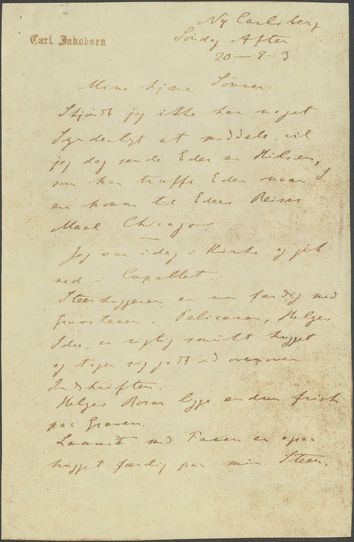 Ny Carlsberg
Carl Jakobsen
Søndag Aften
20-8-3
Mine kjære Sønner
Skjøndt jeg ikke har noget
Synderligt at meddele, vil
jeg dog sende Eder en Hilsen,
som kan træffe Eder naar I
ere komne til Eders Reises
Maal Chicago.
Jeg var idag i Kirke og gik
ned i Capellet.
Steenhuggeren er nu færdig med
Gravstenen. Pelicanen, Helges
Ide, er rigtig smukt hugget
og tager sig godt ud ovenover
Indskriften.
Helges Roser ligge endnu frisk
paa Graven.
Lammet med Fanen er ogsaa
hugget færdig paa min Steen.